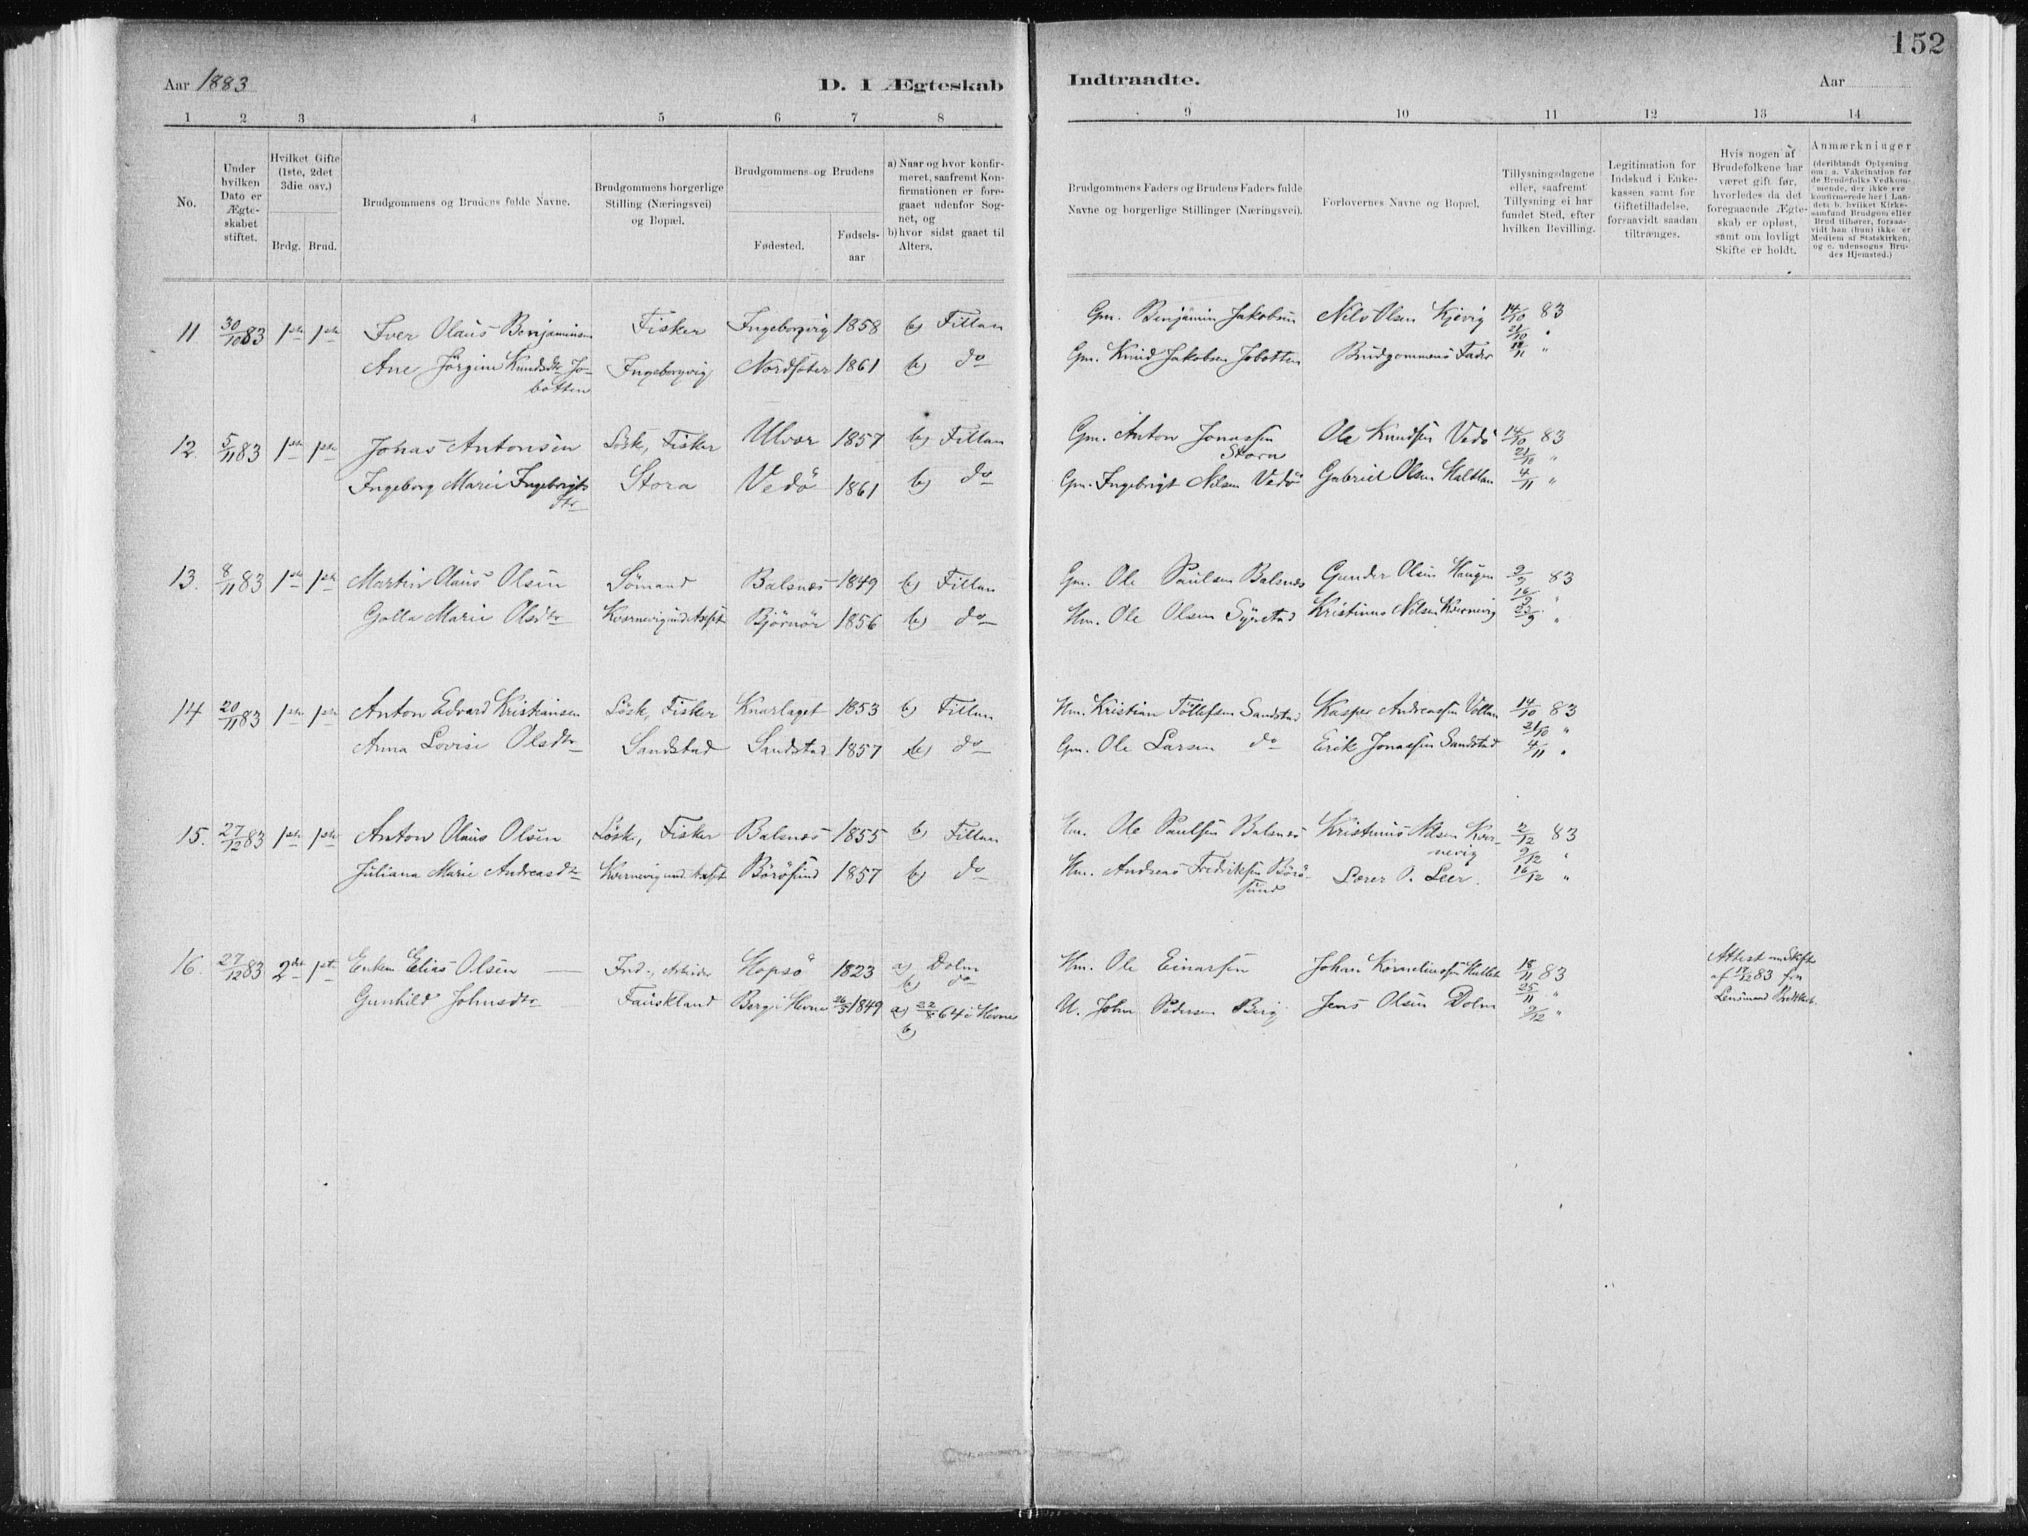 152
Aar 1883
D. I Ægteskab
Indtraadte.
Aar
1 2 3 4 5 6 7 8
9 10 11 12 13 14
No.
Under hvilken Dato er Ægteskabet stiftet.
Hvilket Gifte (1ste, 2det 3die osv.)
Brdg. Brud.
Brudgommens og Brudens fulde Navne.
Brudgommens borgerlige Stilling (Næringsvei) og Bopæl.
Brudgommens og Brudens
Fødested.
Fødsels-aar
a) Naar og hvor konfirmeret, saafremt Konfirmationen er foregaaet udenfor Sognet, og
b) hvor sidst gaaet til Alters.
Brudgommens Faders og Brudens Faders fulde Navne og borgerlige Stillinger (Næringsvei).
Forlovernes Navne og Bopæl.
Tillysningsdagene eller, saafremt Tillysning ei har fundet Sted, efter hvilken Bevilling.
Legitimation for Indskud i Enkekassen samt for Giftetilladelse, forsaavidt saadan tiltrænges.
Hvis nogen af Brudefolkene har været gift før, hvorledes da det foregaaende Ægteskab er opløst, samt om lovligt Skifte er holdt.
Anmærkninger
(deriblandt Oplysning om: a. Vakcination for de Brudefolks Vedkommende, der ikke ere konfirmerede her i Landet; b. hvilket Kirkesamfund Brudgom eller Brud tilhører, forsaavidt han (hun) ikke er Medlem af Statskirken, og c. udensogns Brudes Hjemsted.)
11 30/10 83 1ste 1ste Iver Olaus Benjaminsen Fisker Ingeborgvig 1858 b) Fillan Gm. Benjamin Jakobsen Nils Olsen Kjevig 14/10 83
21/10 "
Ane Jörgine Knudsdtr Jobotten Ingeborgvig Nordsöter 1861 b) do Gm. Knud Jakobsen Jobotten Brudgommens Fader /11 "
12. 5/11 83 1ste 1ste Johas Antonsen Lösk, Fisker Ulvær 1857 b) Fillan Gm. Anton Jonassen Stora Ole Knudsen Vedö 14/10 83
21/10 "
Ingeborg Marie Ingebrigtsdtr Stora Vedö 1861 b) do Gm. Ingebrigt Nilsen Vedö Gabriel Olsen Maltlan 4/11 "
13. 8/11 83 1ste 1ste Martin Olaus Olsen Sömand Balsnæs 1849 b) Fillan Gm. Ole Paulsen Balsnæs Gunder Olsen Haugen 2/9 83
16/9 "
Golla Marie Olsdtr Kvernevig und. Björnör 1856 b) do Hm. Ole Olsen Kristinus Nilsen Kvernevig 23/9 "
14 20/11 83 1ste 1ste Anton Edvard Kristiansen Lösk, Fisker Knarlaget 1853 b) Fillan Hm. Kristian Töllefsen Sandstad Kasper Andreassen Vollan 14/10 83
21/10 "
Anna Lovise Olsdtr Sandstad Sandstad 1857 b) do Gm. Ole Larsen do Erik Jonassen Sandstad 4/11 "
15. 27/12 83 1ste 1ste Anton Olaus Olsen Lösk, Fisker Balsnæs 1855 b) Fillan Ole Paulsen Balsnæs Kristinus Nilsen Kvernevig 2/12 83
9/12 "
Juliana Marie Andreasdtr Kvernevig und. Börösund 1857 b) do Hm. Andreas Fredriksen Börösund Lærer O. Leer. 16/12 "
16. 27/12 83 2det 1ste Enkem. Elias Olsen Ind., Arbeider Hopsö 1823 a) Dolm b) do Hm. Ole Einarsen Johan Korneliussen 18/11 83 Attest om Skifte af 17/12 83 fra Lensmand
25/11 "
Gunhild Johnsdtr Fauskland Berg i Hevne 26/5 1849 a) 22/8 64 i Hevne b) U. John Pedersen Berg Jens Olsen Dolm 2/12 "